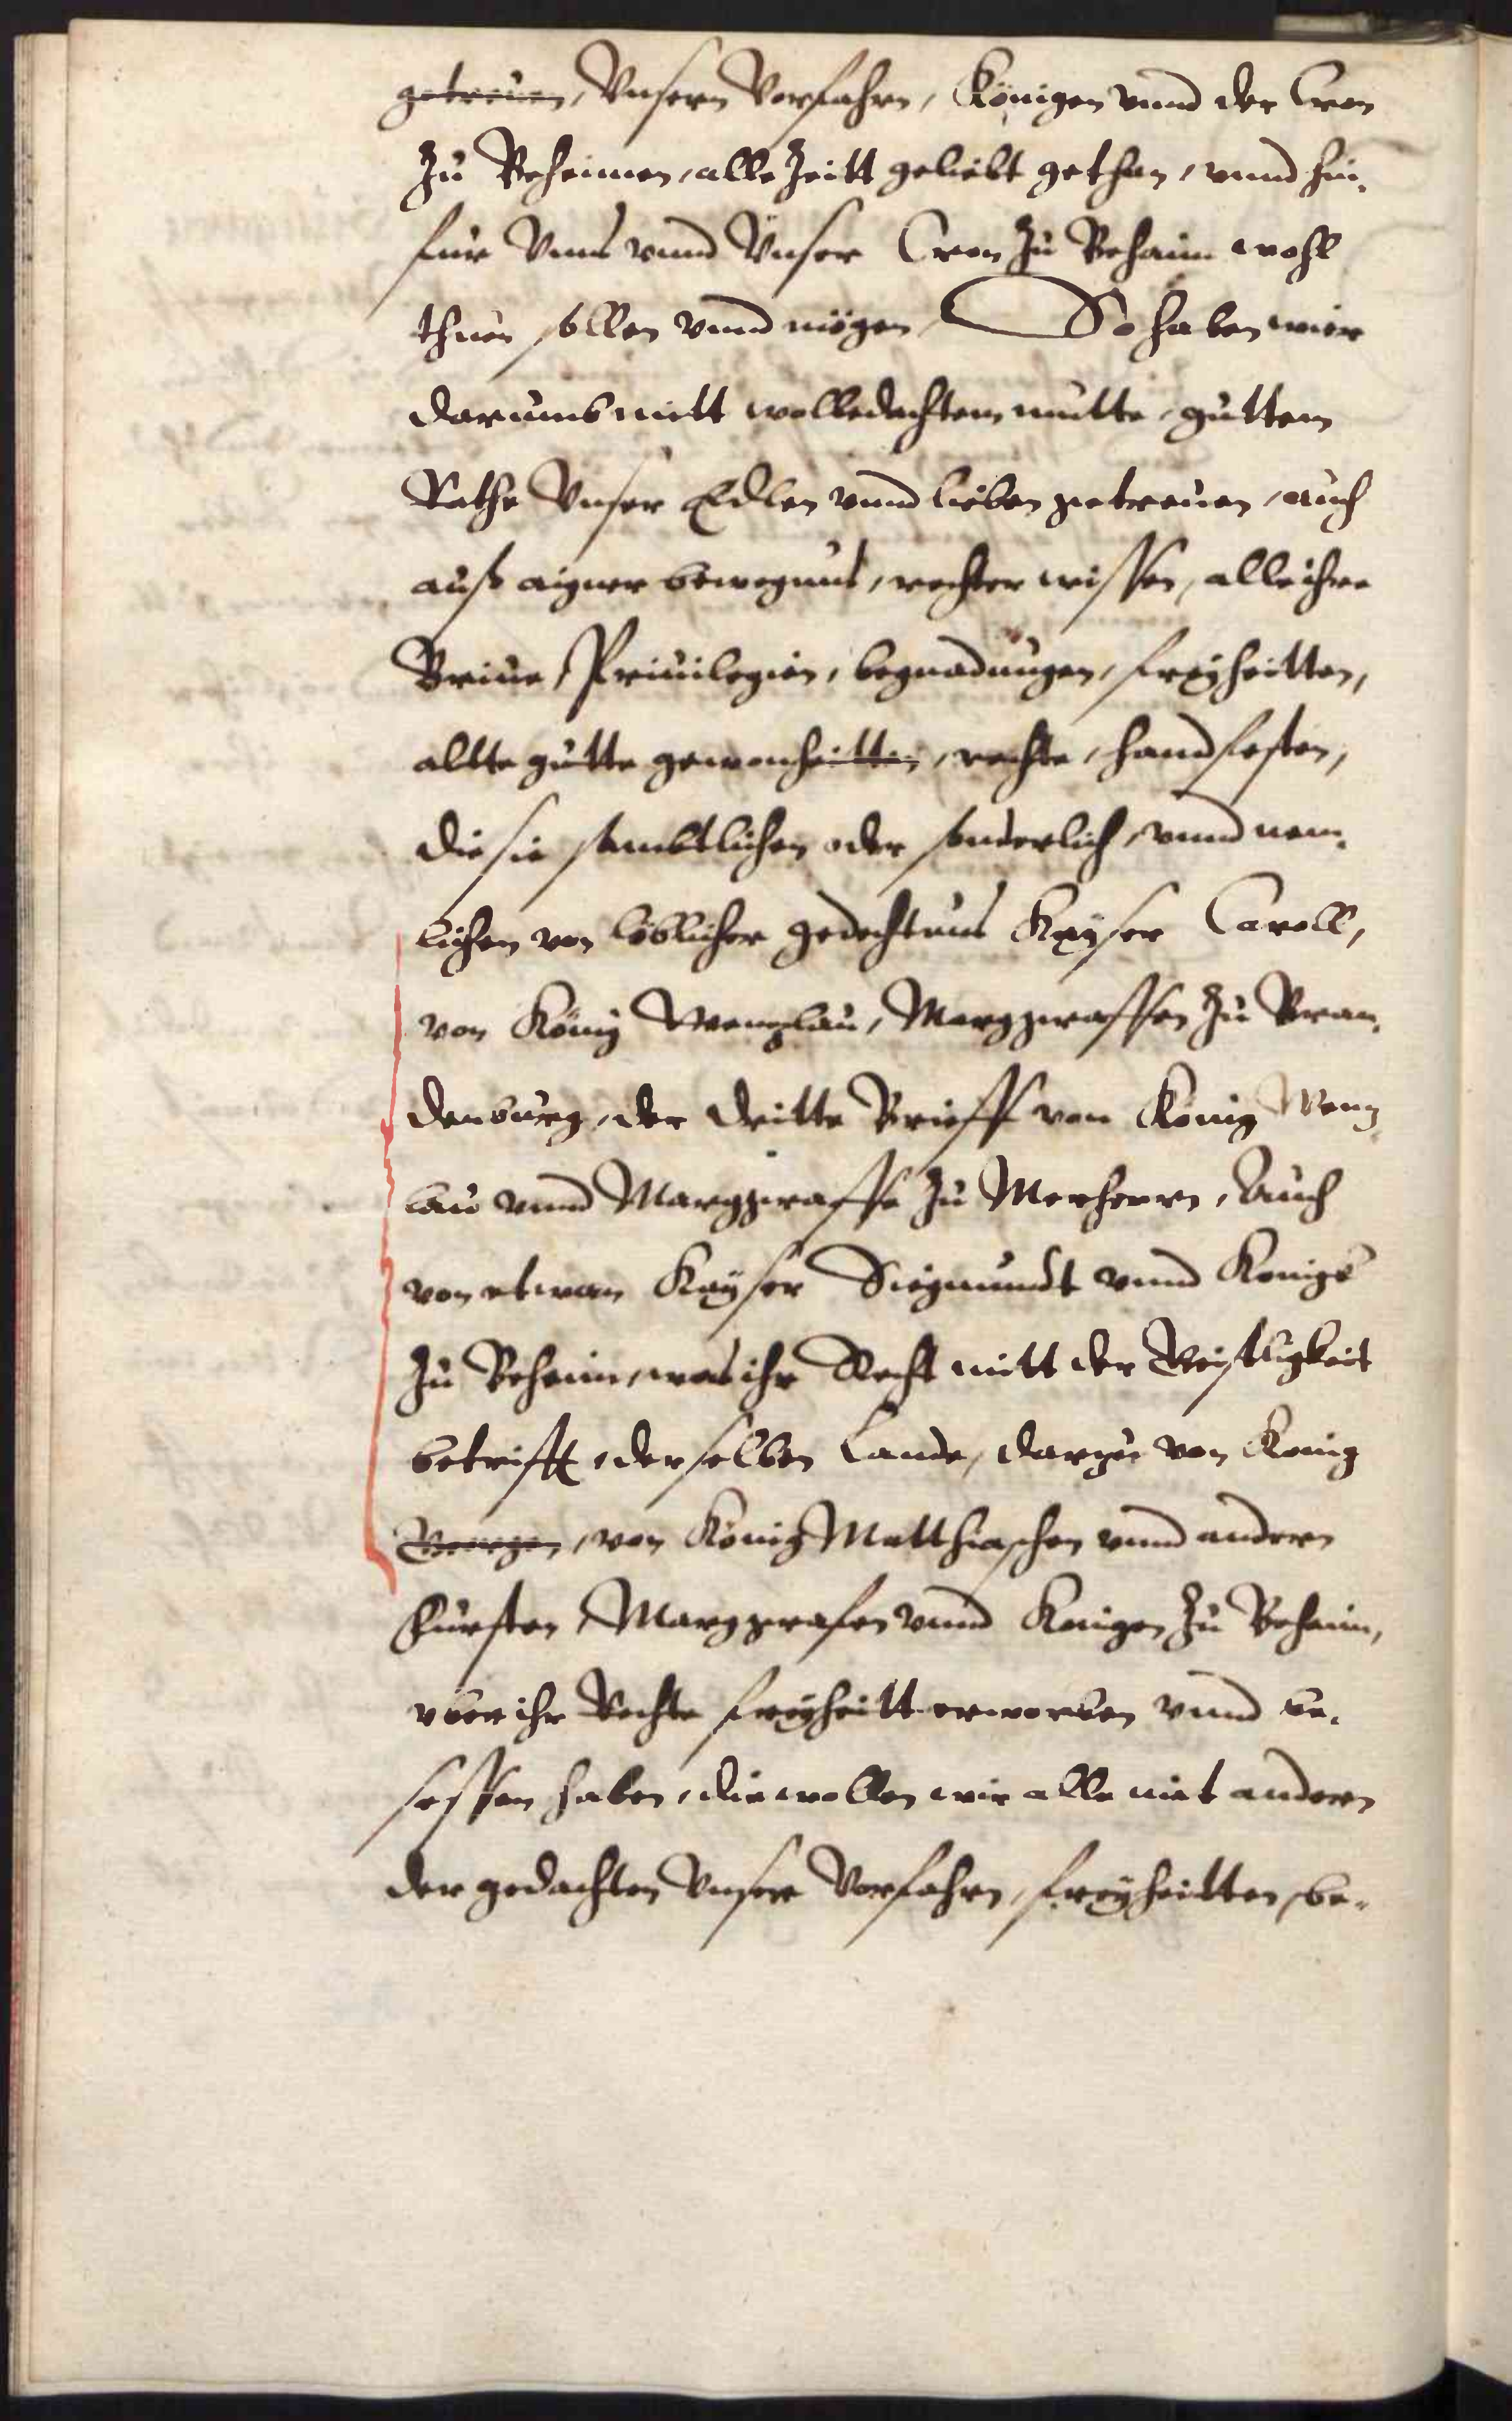 getreuen, Vnsern Vorfahrn, Königen vnnd der Cron
Zu Beheimen, alle Zeitt geliebt gethan, vnnd hin¬
für Vnns vnnd Vnser Cron Zu Behaim wohl
thuen sollen vnnd mögen, So haben wier
darumb mitt wolbedachtem mutte, guttem
Rathe Vnser Edlen vnnd lieben getreuen, auch
auß aigner bewegnus, rechter wissen, alle ihre
Brieue, Priuilegien, begnadungen, freyheitten,
altte gutte gewonheitten, rechte, handfesten,
die sie sambtlichen oder sonderlich, vnnd nem¬
lichen von löblicher gedechtnus Kayser Caroll,
von König Wenzlau, Marggraffen Zu Bran¬
denburg, der dritte Brieff von König Wenz¬
lau vnnd Marggraffe Zu Merherrn, Auch
von etwan Kayser Siegmundt vnnd Konige
Zu Beheim, was ihr Recht mitt der Geistligkeit
betrifft, derselben Lande, darzu von Konig
Georgen, von König Matthiaschen vnnd andern
Fürsten, Marggrafen vnnd Konigen Zu Behaim,
vber ihr Rechte freyheitt erworben vnnd be¬
sessen haben, die wollen wir alle mit andern
der gedachten Vnsere Vorfahrn, freyheitten, be¬